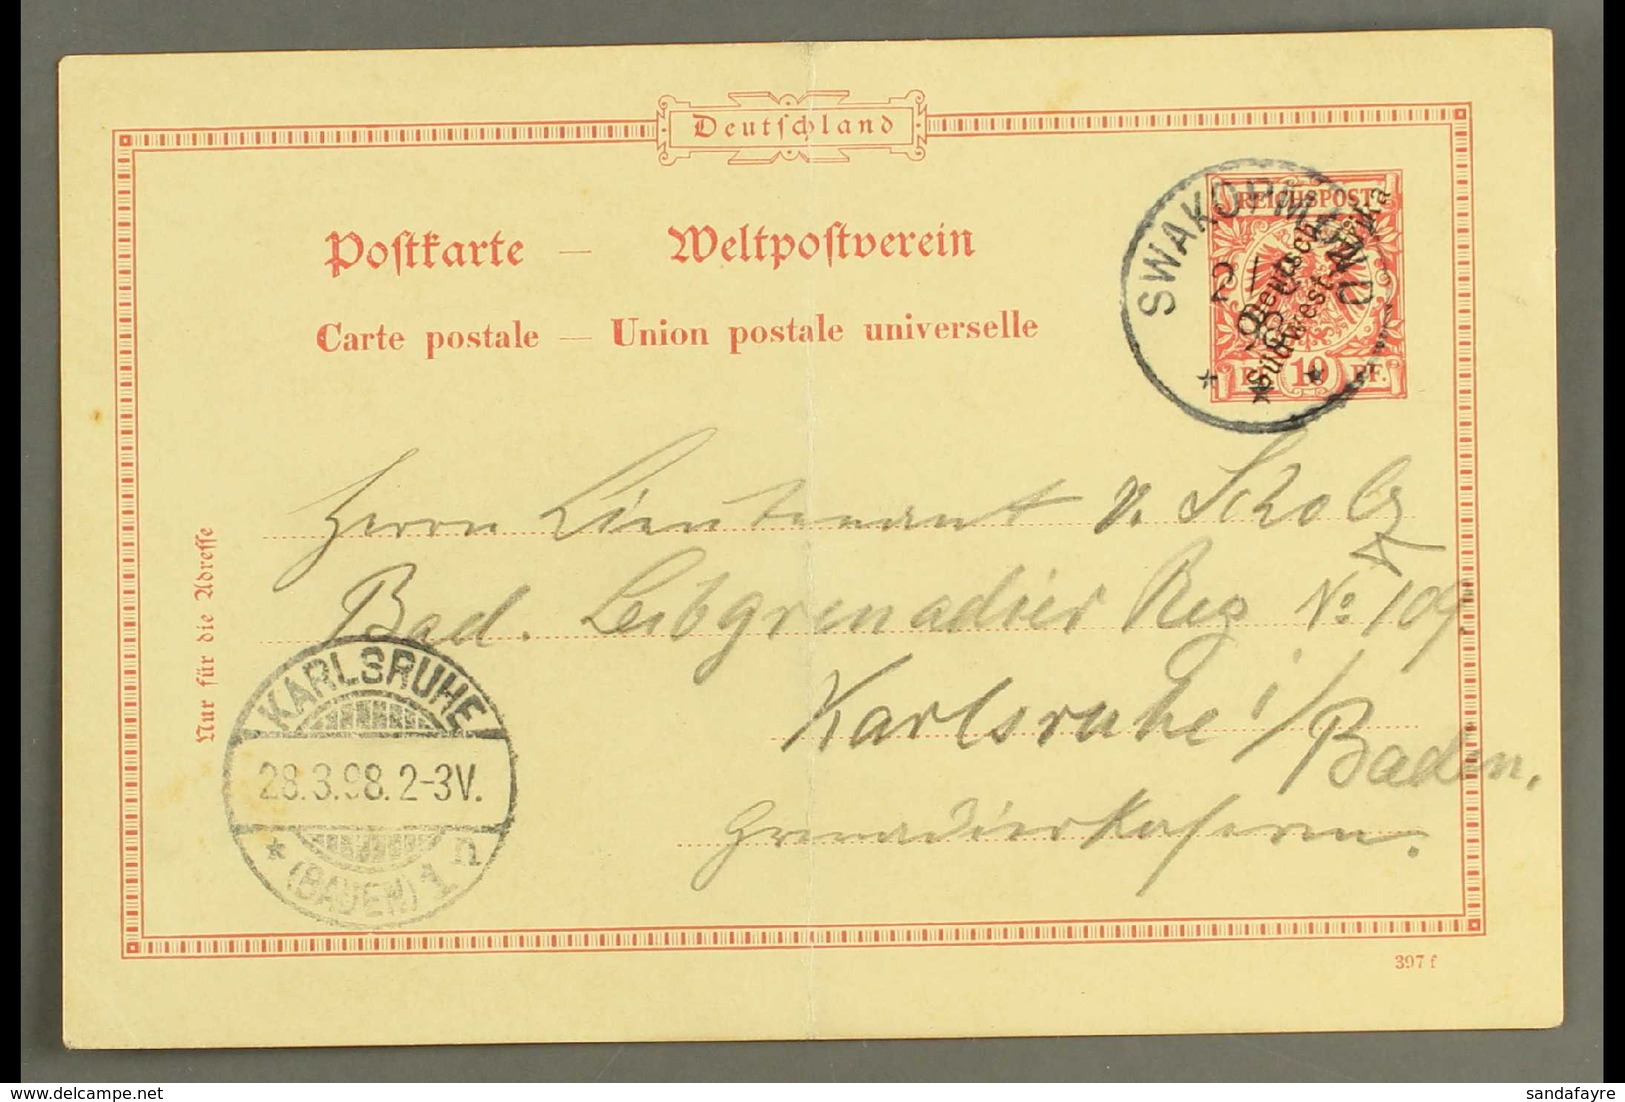 Deutſchland
Poſtkarte — Weltpoſtverein
Carte postale — Union postale universelle
REICHSPOST
Deutsch-
Südwest-Afrika
10 PF.
SWAKOPMUND
Herrn Lieutenant v. Scholz
Bad. Leibgrenadier Reg No 109.
Karlsruhe i/Baden.
Grenadierkaserne.
Nur für die Adreſſe
KARLSRUHE
28.3.98. 2-3V.
(BADEN) 1 n
397 f
sandafayre